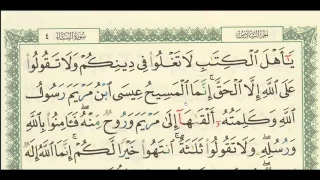 الجزء السادس سورة النساء ٤
يَٰٓأَهْلَ ٱلْكِتَٰبِ لَا تَغْلُوا۟ فِى دِينِكُمْ وَلَا تَقُولُوا۟
عَلَى ٱللَّهِ إِلَّا ٱلْحَقَّ ۚ إِنَّمَا ٱلْمَسِيحُ عِيسَى ٱبْنُ مَرْيَمَ رَسُولُ
ٱللَّهِ وَكَلِمَتُهُۥٓ أَلْقَىٰهَآ إِلَىٰ مَرْيَمَ وَرُوحٌ مِّنْهُ ۖ فَـَٔامِنُوا۟ بِٱللَّهِ
وَرُسُلِهِۦ ۖ وَلَا تَقُولُوا۟ ثَلَٰثَةٌ ۚ ٱنتَهُوا۟ خَيْرًا لَّكُمْ ۚ إِنَّمَا ٱللَّهُ إِلَٰهٌ